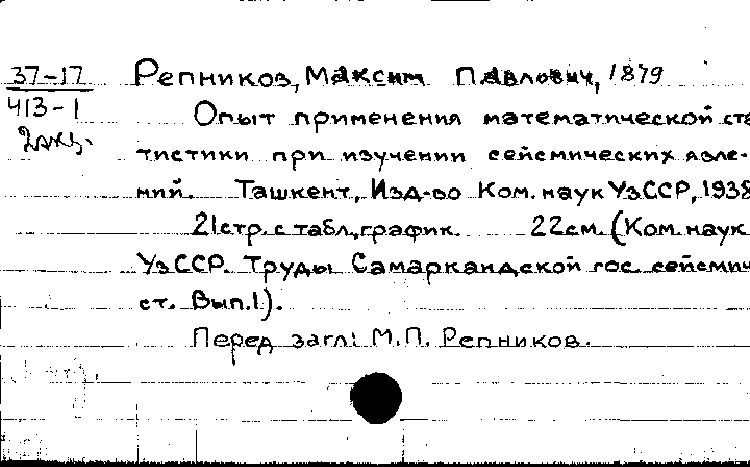 37-17 Репников, Максим Павлович, 1879
413-1 Опыт применения математической ста
2 экз. тистики при изучении сейсмических явле-
ний. Ташкент, Изд-во Ком. наук УзССР, 1938
21 стр. с табл., график. 22 см. (Ком. наук
УзССР. Труды Самаркандской гос. сейсмич
ст. Вып. 1).
Перед загл: М.П. Репников.